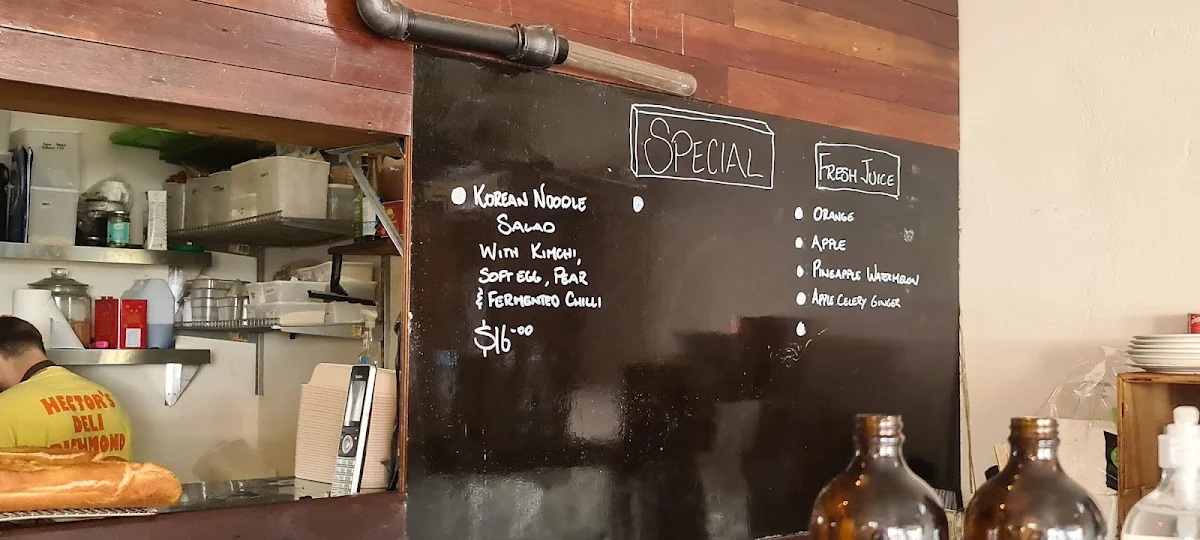 SPECIAL
KOREAN NOODLE
SALAD
WITH KIMCHI,
SOFT EGG, PEAR
& FERMENTED CHILLI
$16.00
FRESH JUICE
ORANGE
APPLE
PINEAPPLE WATERMELON
APPLE CELERY GINGER
HECTOR'S
DELI
RICHMOND